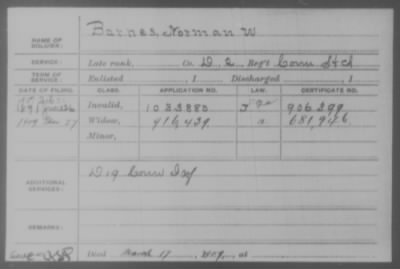 NAME OF SOLDIER: Barnes, Norman W
SERVICE: Late rank, Co. D, 2, Reg't Conn
TERM OF SERVICE: Enlisted , 1 Discharged , 1
DATE OF FILING. CLASS. APPLICATION NO. LAW. CERTIFICATE NO.
1891 Invalid, 1033880 906299
1909 27 Widow, 916,429 a 681,946
Minor,
ADDITIONAL SERVICES: D 9 Conn Inf
REMARKS:
Died March 17, 1909, at